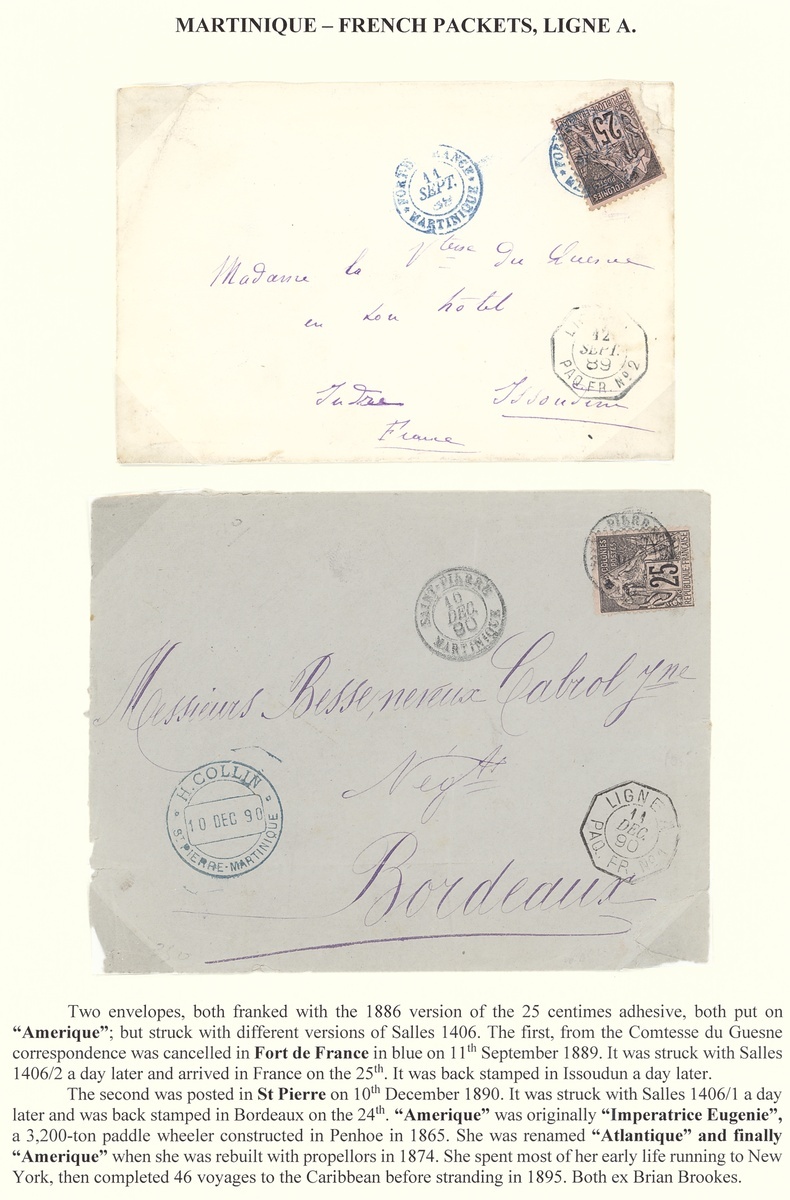 MARTINIQUE – FRENCH PACKETS, LIGNE A.
25
COLONIES
POSTES
RÉPUBLIQUE FRANÇAISE
FORT-DE-FRANCE
11
SEPT.
MARTINIQUE
Madame la Vtesse du Quesne
en son hôtel
LI
12
SEPT.
89
PAQ. FR. No 2
Indre Issoudun
France
SAINT-PIERRE
10
DEC.
90
MARTINIQUE
COLONIES
POSTES
25
RÉPUBLIQUE FRANÇAISE
Messieurs Besse, neveux Cabrol Jne
Négts
H. COLLIN
10 DEC 90
ST PIERRE-MARTINIQUE
LIGNE A
11
DEC.
90
PAQ. FR. No 1
Bordeaux
Two envelopes, both franked with the 1886 version of the 25 centimes adhesive, both put on
“Amerique”; but struck with different versions of Salles 1406. The first, from the Comtesse du Guesne
correspondence was cancelled in Fort de France in blue on 11th September 1889. It was struck with Salles
1406/2 a day later and arrived in France on the 25th. It was back stamped in Issoudun a day later.
The second was posted in St Pierre on 10th December 1890. It was struck with Salles 1406/1 a day
later and was back stamped in Bordeaux on the 24th. “Amerique” was originally “Imperatrice Eugenie”,
a 3,200-ton paddle wheeler constructed in Penhoe in 1865. She was renamed “Atlantique” and finally
“Amerique” when she was rebuilt with propellors in 1874. She spent most of her early life running to New
York, then completed 46 voyages to the Caribbean before stranding in 1895. Both ex Brian Brookes.